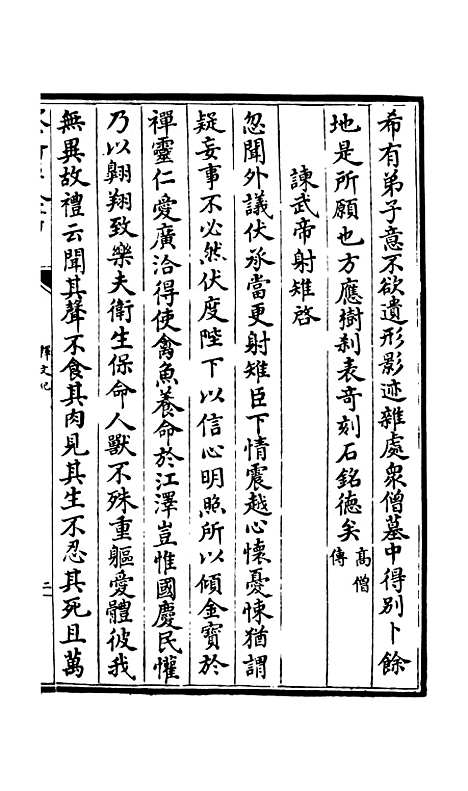 希有弟子意不欲遺形影迹雜處衆僧墓中得別卜餘
地是所願也方應樹刹表奇刻石銘德矣高僧傳
諫武帝射雉啓
忽聞外議伏承當更射雉臣下情震越心懷憂悚猶謂
疑妄事不必然伏度陛下以信心明照所以傾金寶於
禪靈仁愛廣洽得使禽魚養命於江澤豈惟國慶民懽
乃以翱翔致樂夫衛生保命人獸不殊重軀愛體彼我
無異故禮云聞其聲不食其肉見其生不忍其死且萬
釋文紀
二